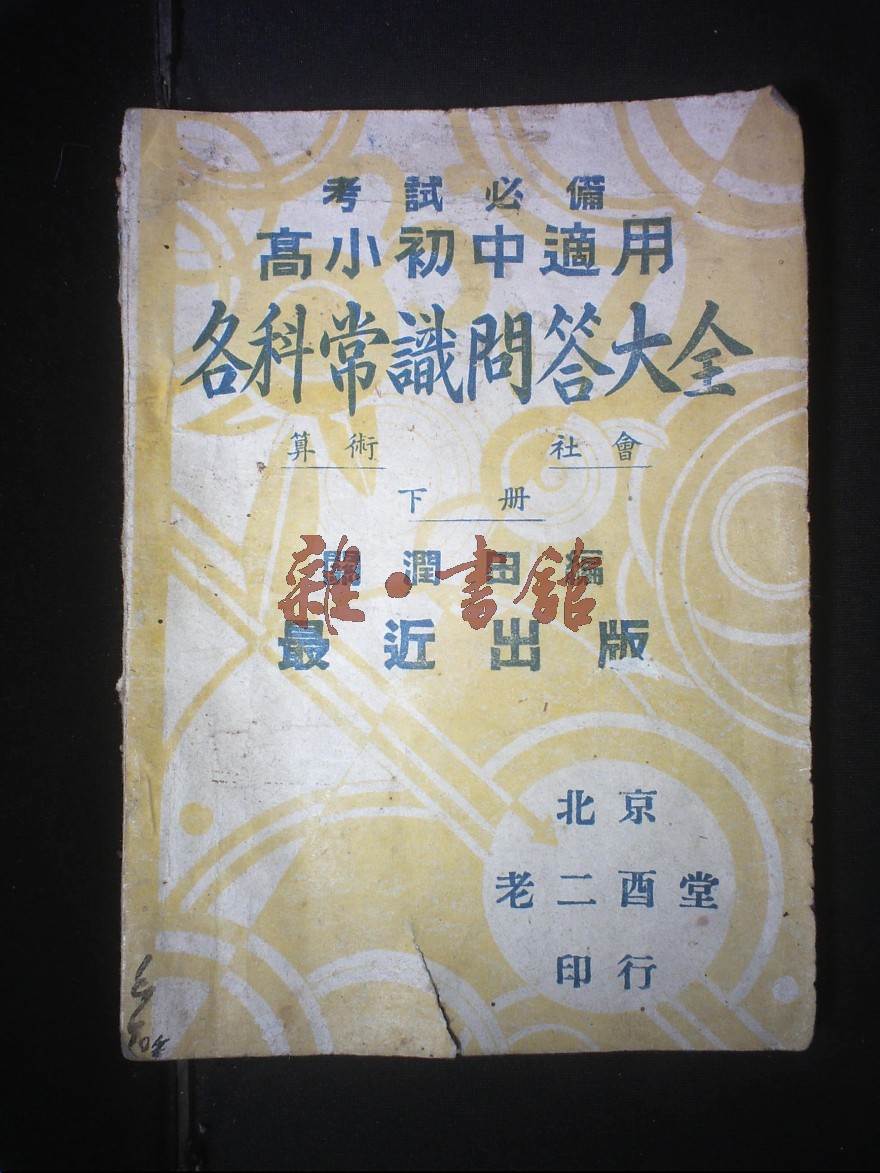 考試必備
高小初中適用
各科常識問答大全
算術 社會
下册
關潤田編
雜·書館
最近出版
北京
老二酉堂
印行